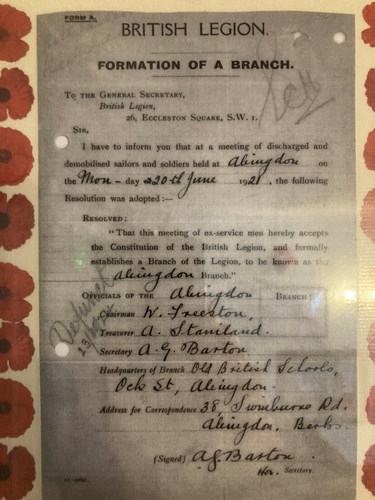 FORM A.
BRITISH LEGION.
FORMATION OF A BRANCH.
TO THE GENERAL SECRETARY,
British Legion,
26, ECCLESTON SQUARE, S.W. 1.
SIR,
I have to inform you that at a meeting of discharged and
demobilised sailors and soldiers held at Abingdon on
the Mon-day 20th June 1921, the following
Resolution was adopted:—
RESOLVED:
"That this meeting of ex-service men hereby accepts
the Constitution of the British Legion, and formally
establishes a Branch of the Legion, to be known as the
Abingdon Branch."
OFFICIALS OF THE Abingdon BRANCH:
Chairman W. Freeston,
Treasurer A. Staniland.
Secretary A. G. Barton
Headquarters of Branch Old British Schools,
Ock St, Abingdon.
Address for Correspondence 38, Swinburne Rd.
Abingdon, Berks.
(Signed) A.G. Barton.
Hon. Secretary.